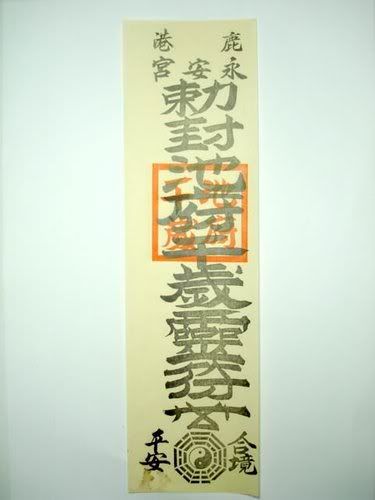 鹿港
永安宮
勅封池府千歲靈符
池府
千歲
合境
平安